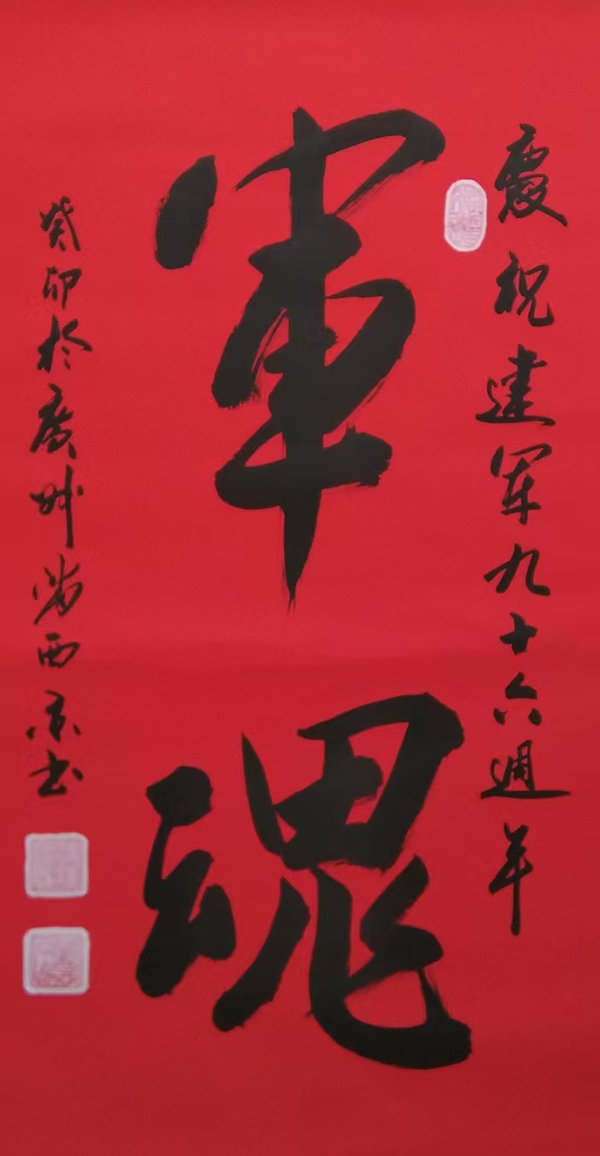 慶祝建軍九十六週年
軍魂
癸卯於廣州勞西京書